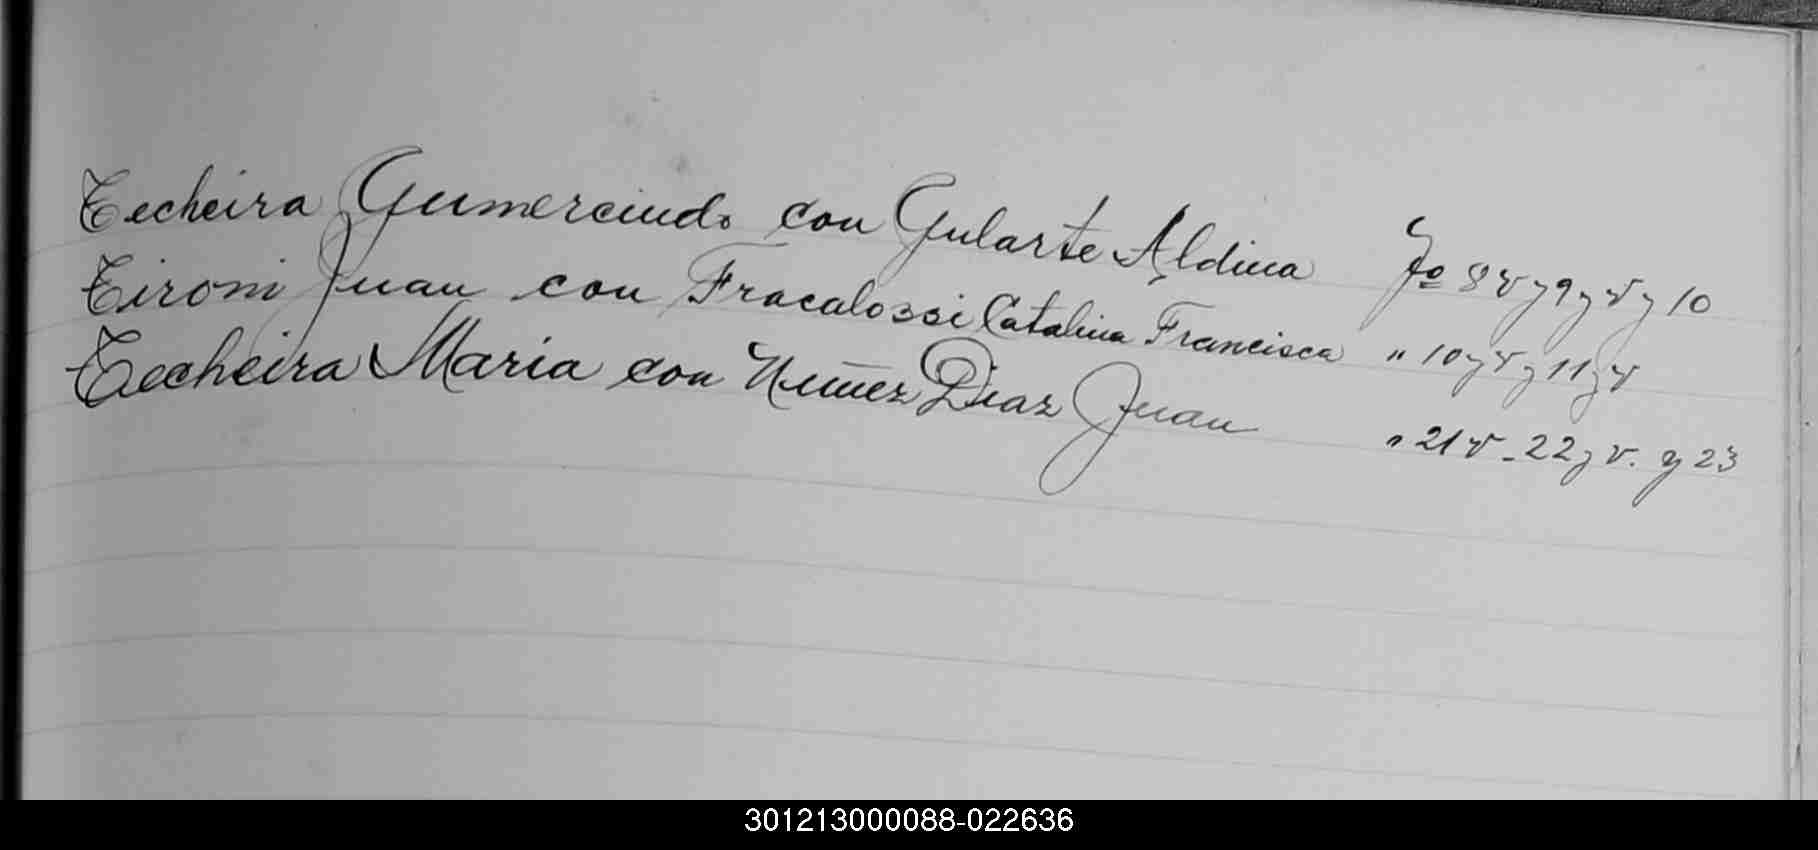 Techeira Gumercindo con Gularte Aldina Fº 8 v y 9 y v y 10
Tironi Juan con Fracalossi Catalina Francisca " 10 y v y 11 y v
Techeira Maria con Nuñez Diaz Juan " 21 v - 22 y v. y 23
301213000088-022636